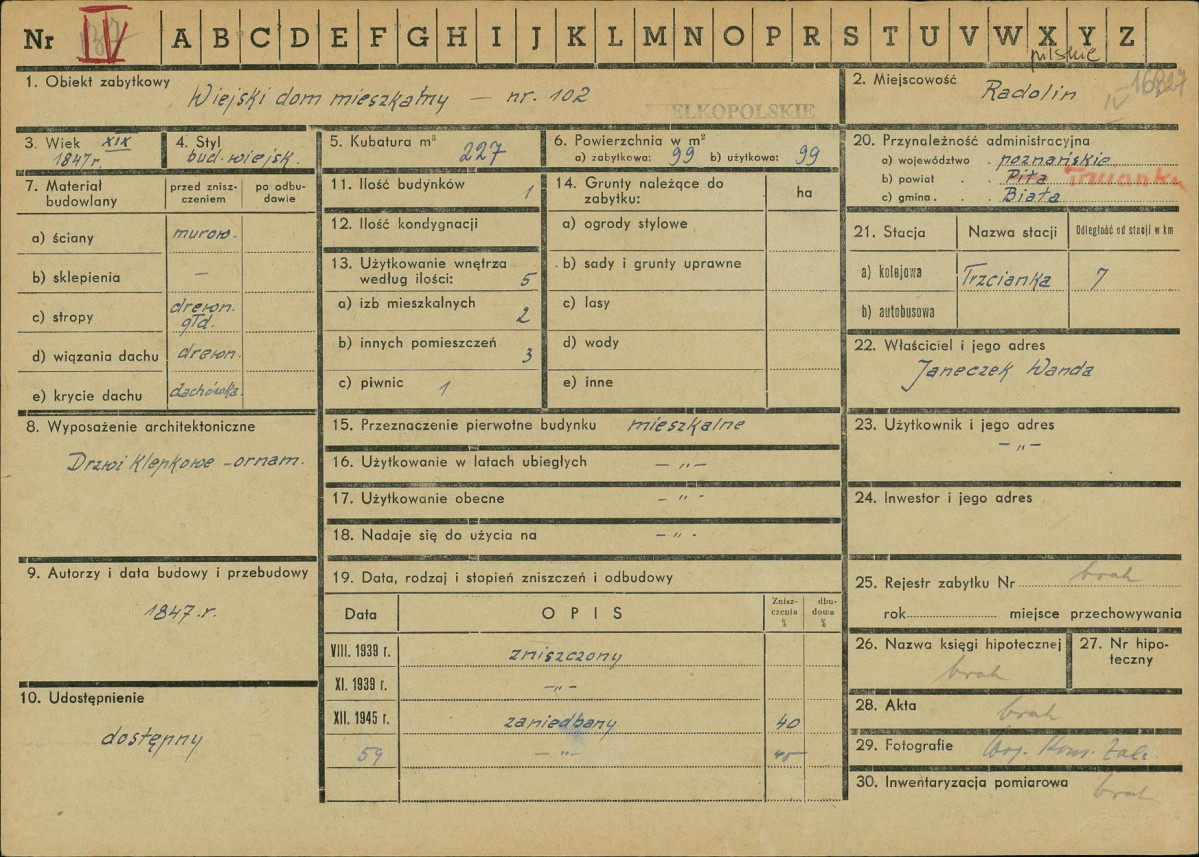 Nr IV A B C D E F G H I J K L M N O P R S T U V W X Y Z
pilskie
1. Obiekt zabytkowy
Wiejski dom mieszkalny — nr. 102
WIELKOPOLSKIE
2. Miejscowość
Radolin
IV
3. Wiek XIX
1847 r.
4. Styl
bud. wiejsk.
5. Kubatura m³
227
6. Powierzchnia w m²
a) zabytkowa: 99 b) użytkowa: 99
20. Przynależność administracyjna
a) województwo . poznańskie
b) powiat . . Piła Trzcianka
c) gmina . . . Biała
7. Materiał budowlany
przed znisz-
czeniem
po odbu-
dowie
a) ściany murow.
b) sklepienia —
c) stropy drewn.
głd.
d) wiązania dachu drewn.
e) krycie dachu dachówka.
11. Ilość budynków 1
12. Ilość kondygnacji
13. Użytkowanie wnętrza
według ilości: 5
a) izb mieszkalnych 2
b) innych pomieszczeń 3
c) piwnic 1
14. Grunty należące do
zabytku:
ha
a) ogrody stylowe
b) sady i grunty uprawne
c) lasy
d) wody
e) inne
21. Stacja Nazwa stacji Odległość od stacji w km
a) kolejowa Trzcianka 7
b) autobusowa
22. Właściciel i jego adres
Janeczek Wanda
8. Wyposażenie architektoniczne
Drzwi klepkowe - ornam.
15. Przeznaczenie pierwotne budynku mieszkalne
16. Użytkowanie w latach ubiegłych — „ —
17. Użytkowanie obecne — „ -
18. Nadaje się do użycia na — „ -
23. Użytkownik i jego adres
— „ —
24. Inwestor i jego adres
9. Autorzy i data budowy i przebudowy
1847.r.
19. Data, rodzaj i stopień zniszczeń i odbudowy
Data OPIS
Znisz-
czenia
%
dbu-
dowa
%
VIII. 1939 r. zniszczony
XI. 1939 r. — „ —
XII. 1945 r. zaniedbany 40
59 — „ — 45
25. Rejestr zabytku Nr brak
rok miejsce przechowywania
26. Nazwa księgi hipotecznej
brak
27. Nr hipo-
teczny
10. Udostępnienie
dostępny
28. Akta brak
29. Fotografie Woj. Kons. Zab.
30. Inwentaryzacja pomiarowa
brak